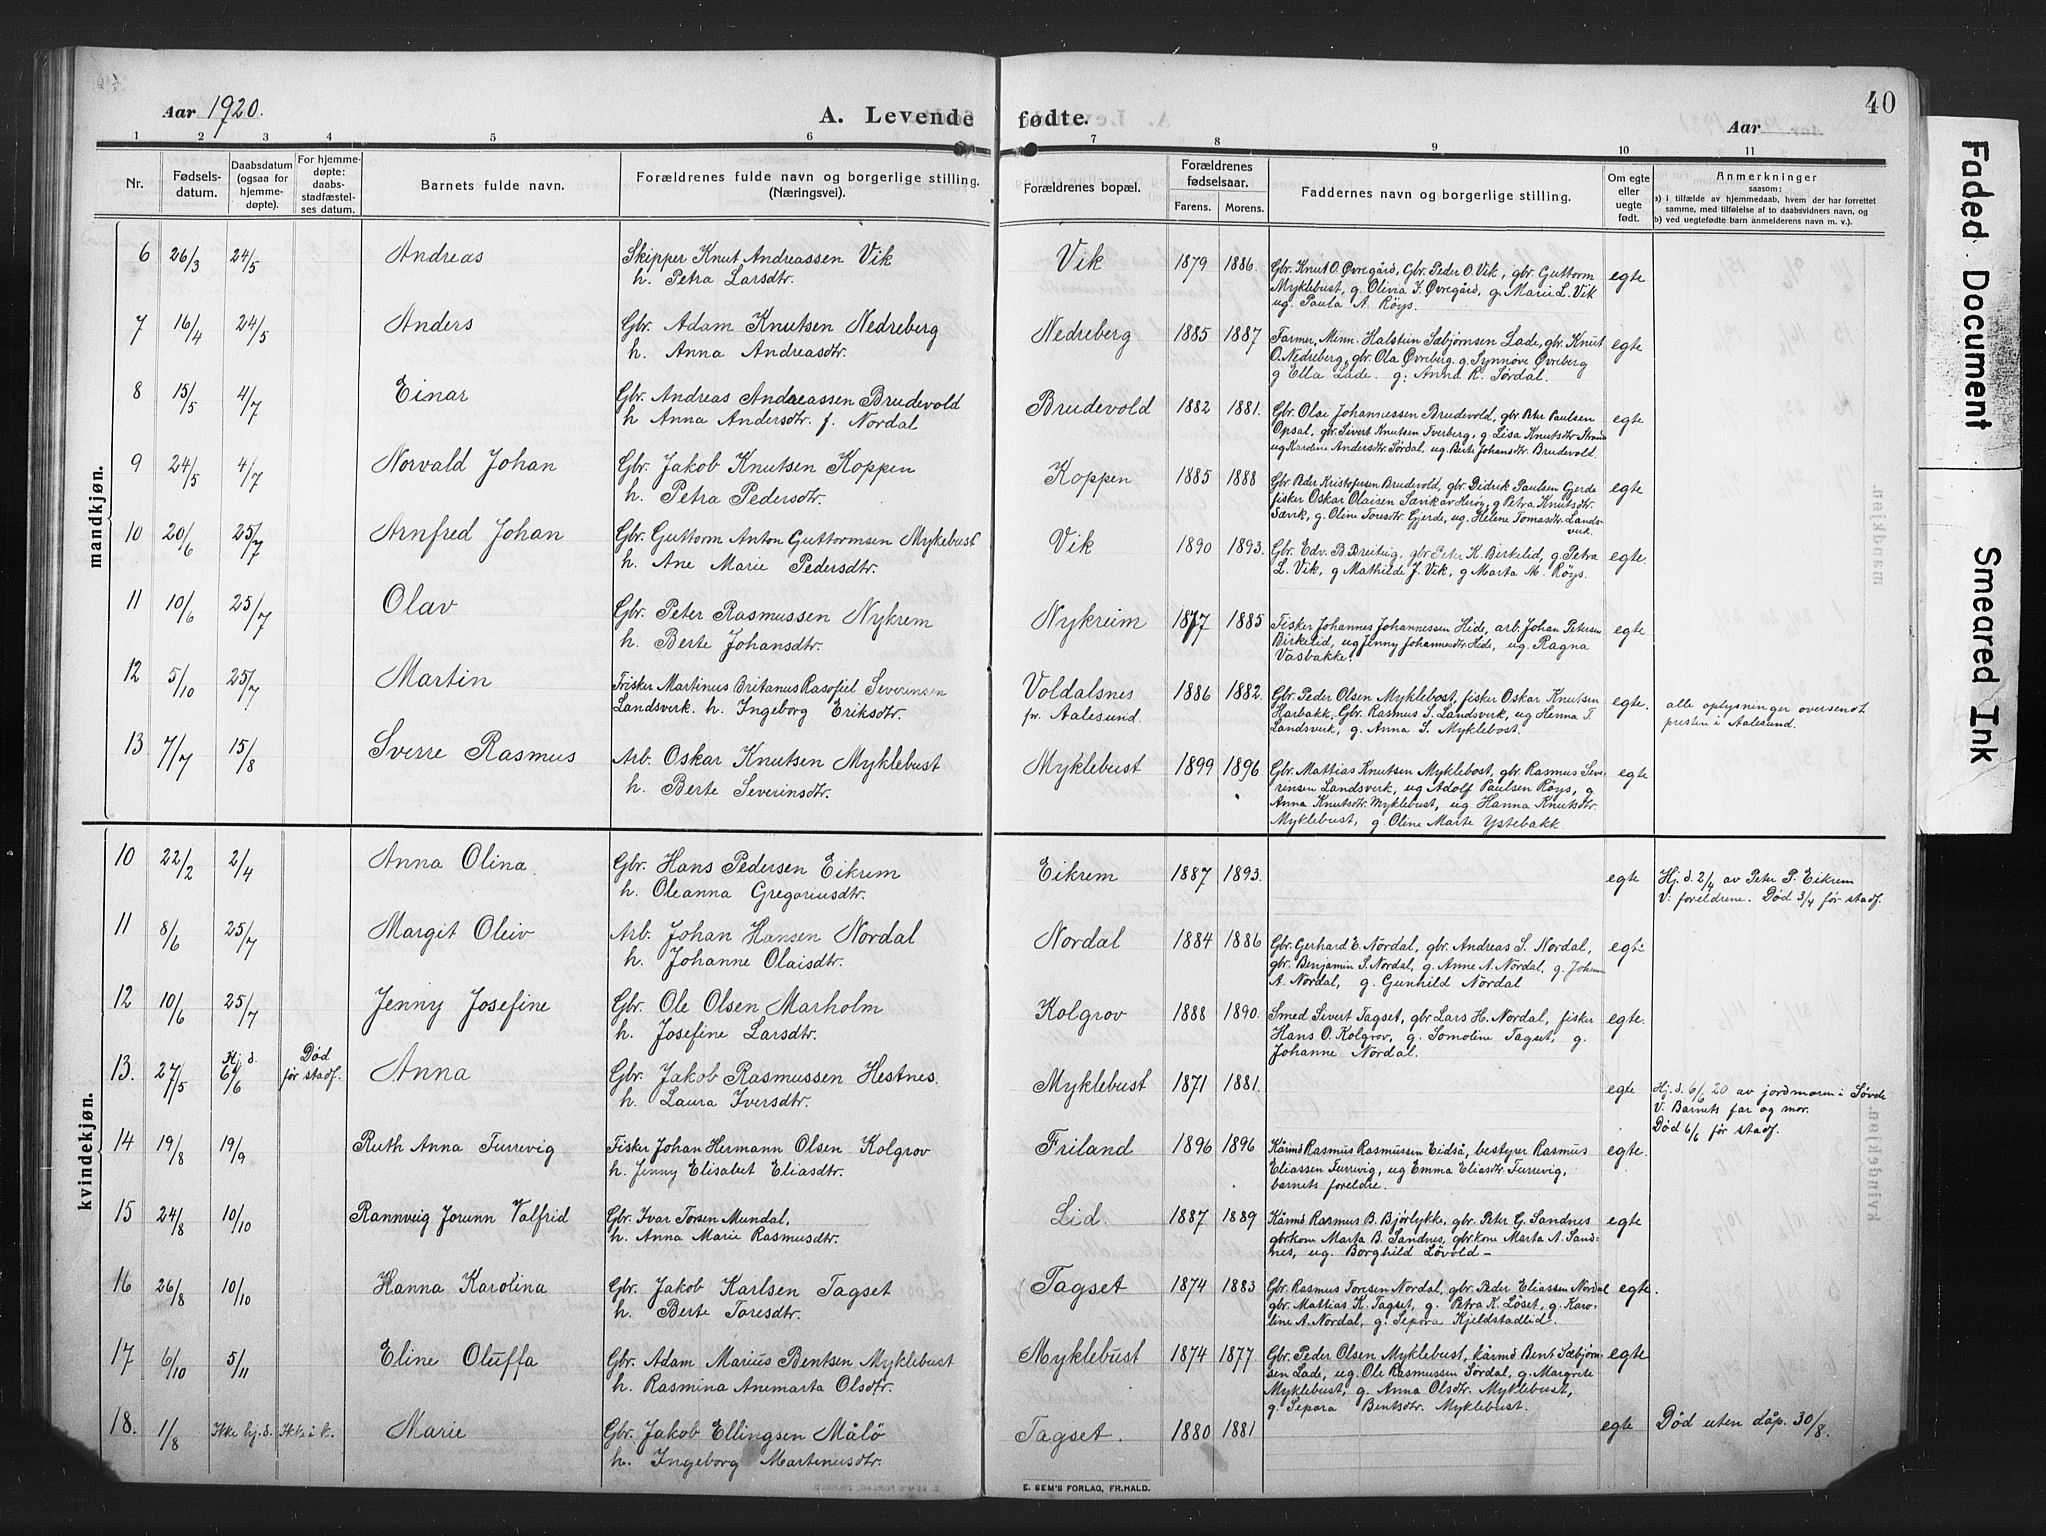 Aar 1920.
A. Levende fødte.
Aar
40
1 2 3 4 5 6 7 8 9 10 11
Nr.
Fødsels-
datum.
Daabsdatum
(ogsaa for
hjemme-
døpte).
For hjemme-
døpte:
daabs-
stadfæstel-
ses datum.
Barnets fulde navn.
Forældrenes fulde navn og borgerlige stilling.
(Næringsvei).
Forældrenes bopæl.
Forældrenes
fødselsaar.
Farens. Morens.
Faddernes navn og borgerlige stilling.
Om egte
eller
uegte
født.
Anmerkninger
saasom:
a) i tilfælde av hjemmedaab, hvem der har forrettet
samme, med tilføielse af to daabsvidners navn, og
b) ved uegtefødte barn anmelderens navn m. v.).
mandkjøn.
6 26/3 24/5 Andreas Skipper Knut Andreassen Vik Vik 1879 1886. Gbr. Knut O. Øvregård, Gbr. Peder O. Vik, gbr. Guttorm egte
h. Petra Larsdtr. Myklebust, g. Olivia I. Øvregård, g. Marie L. Vik
ug. Paula A. Röys.
7 16/4 24/5 Anders Gbr. Adam Knutsen Nedreberg Nedreberg 1885 1887 Farmer, Minn. Halstein Sæbjørnsen Lade, gbr. Knut egte
h. Anna Andreasdtr. O. Nedreberg, gbr. Ola Øvreberg. g Synnøve Øvreberg
g Ella Lade. g. Anna R. Sørdal.
8 15/5 4/7 Einar Gbr. Andreas Andreassen Brudevold Brudevold 1882 1881. Gbr. Olai Johannessen Brudevold, gbr. Peter Paulsen egte
h Anna Andersdtr. f. Nordal Opsal, gbr. Sivert Knutsen Tverberg, g Lisa Knutsdtr. Strand
ug Karoline Andersdtr. Sørdal, ug. Berte Johansdtr. Brudevold.
9 24/5 4/7 Norvald Johan Gbr. Jakob Knutsen Koppen Koppen 1885 1888 Gbr. Peder Kristofersen Brudevold, gbr. Didrik Paulsen Gjerde egte
h. Petra Pedersdtr. fisker Oskar Olaisen Sævik av Herøy, g Petra Knutsdtr.
Sævik, g. Oline Toresdtr. Gjerde, ug. Helene Tomasdtr. Lands-
verk.
10 20/6 25/7 Arnfred Johan Gbr. Guttorm Anton Guttormsen Myklebust Vik 1890 1893. Gbr. Edv. B. Breitvig, gbr Peter K. Birkelid, g. Petra egte.
h. Ane Marie Pedersdtr. L. Vik, g Mathilde J. Vik, g Marta M. Röys.
11 10/6 25/7 Olav Gbr. Peter Rasmussen Nykrem Nykreim 1877 1885 Fisker Johannes Johannessen Hide, arb. Johan Petersen egte
h. Berte Johansdtr. Birkelid, ug Jenny Johannesdtr. Hide, ug. Ragna
Vasbakke.
12 5/10 25/7 Martin Fisker Martinus Britanus Rasofiel Severinsen Voldalsnes 1886 1882. Gbr. Peder Olsen Myklebost, fisker Oskar Knutsen egte. alle oplysninger oversendt
Landsverk. h. Ingeborg Eriksdtr. pr. Aalesund. Harbakk, Gbr. Rasmus S. Landsverk, ug Henna T. presten i Aalesund.
Landsverk, g. Anna S. Myklebost.
13 7/7 15/8 Sverre Rasmus Arb. Oskar Knutsen Myklebust Myklebust 1899 1896 Gbr. Mattias Knutsen Myklebost, gbr. Rasmus Seve- egte
h. Berte Severinsdtr. rinsen Landsverk, ug Adolf Paulsen Röys, g
Anna Knutsdtr. Myklebust, ug Hanna Knutsdtr.
Myklebust, g. Oline Marte Ystebakk.
kvindekjøn.
10 22/2 2/4 Anna Olina. Gbr. Hans Pedersen Eikrem Eikrem 1887 1893. egte Hj. d. 2/4 av Peter P. Eikrem
h. Oleanna Gregoriusdtr. V: foreldrene. Død 3/4 før stadf.
11 8/6 25/7 Margit Oleiv Arb. Johan Hansen Nordal Nordal 1884 1886 Gbr. Gerhard E. Nordal, gbr. Andreas S. Nordal, egte
h. Johanne Olaisdtr. gbr. Benjamin S. Nordal, g. Anne A. Nordal, g. Johanne
A. Nordal, g. Gunhild Nordal
12 10/6 25/7 Jenny Josefine Gbr. Ole Olsen Marholm Kolgrov 1888 1890. Smed Sivert Tagset, gbr Lars H. Nordal, fisker egte.
h. Josefine Larsdtr. Hans O. Kolgrov, g. Somoline Tagset, g.
Johanne Nordal.
13. 27/5 Hj. d. 6/6 Død før stadf. Anna Gbr. Jakob Rasmussen Hestnes. Myklebust 1871 1881. egte Hj. d. 6/6 20 av jordmoren i Søvde
h. Laura Iversdtr. V: Barnets far og mor.
Død 6/6 før stadf.
14 19/8 19/9 Ruth Anna Furrevig Fisker Johan Hermann Olsen Kolgrov Friland 1896 1896 Kårmd Rasmus Rasmussen Eidså, bestyrer Rasmus egte.
h. Jenny Elisabet Eliasdtr. Eliassen Furrevig, ug Emma Eliasdtr Furrevig,
barnets foreldre.
15 24/8 10/10 Rannveig Jorunn Valfrid Gbr. Ivar Torsen Mundal, Lid. 1887 1889 Kårmd Rasmus B. Bjørlykke, gbr. Peter G. Sandnes egte
h. Anna Marie Rasmusdtr. gbrkone Marta B. Sandnes, gbr.kone Marta A. Sand-
nes, ug. Borghild Løvold –
16 26/8 10/10 Hanna Karolina Gbr. Jakob Karlsen Tagset Tagset 1874 1883 Gbr. Rasmus Toresen Nordal, gbr. Peder Eliassen Nordal egte.
h. Berte Toresdtr. gbr. Mattias K. Tagset, g. Petra K. Löset, g. Karo-
line A. Nordal, g. Sepora Kjeldstadlid.
17 6/10 5/11 Eline Oluffa Gbr. Adam Marius Bentsen Myklebust Myklebust 1874 1877 Gbr. Peder Olsen Myklebust, kårmd Bent Sæbjørn- egte
h. Rasmina Anemarta Olsdtr. sen Lade, ug. Ole Rasmussen Sørdal, g. Margrete
Myklebust, g. Anna Olsdtr. Myklebust,
g. Sepora Bentsdtr. Myklebust.
18. 1/8 Ikke hj. d. Ikke i k. Marie Gbr. Jakob Ellingsen Målö Tagset. 1880 1881 egte Død uten dåp. 30/8.
h. Ingeborg Martinusdtr.
E. SEM'S FORLAG, FR.HALD.
Faded Document
Smeared Ink